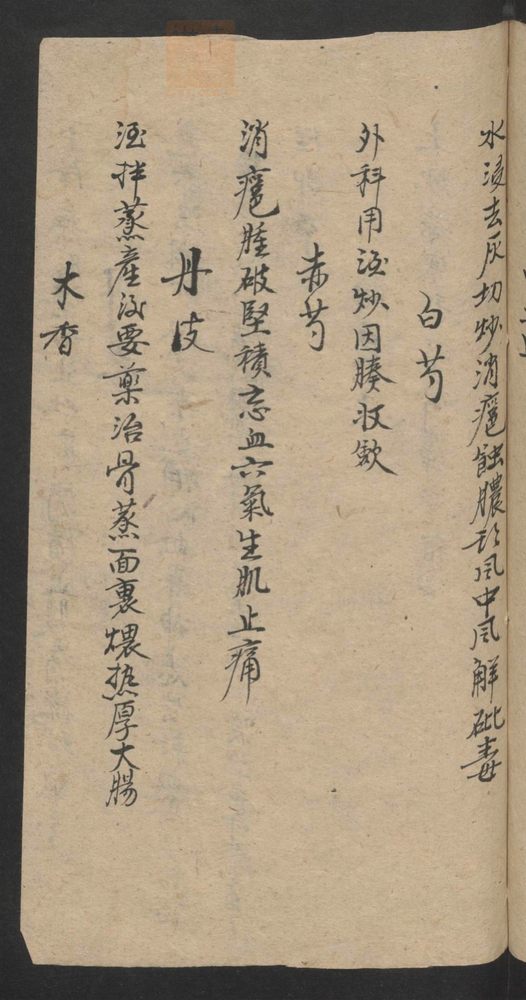 水浸去灰切炒消瘡蝕膿攻風中風解砒毒
白芍
外科用酒炒因腠收歛
赤芍
消瘡腫破堅積忘血六氣生肌止痛
丹皮
酒拌蒸產後要藥治骨蒸面裏煨热厚大腸
木香